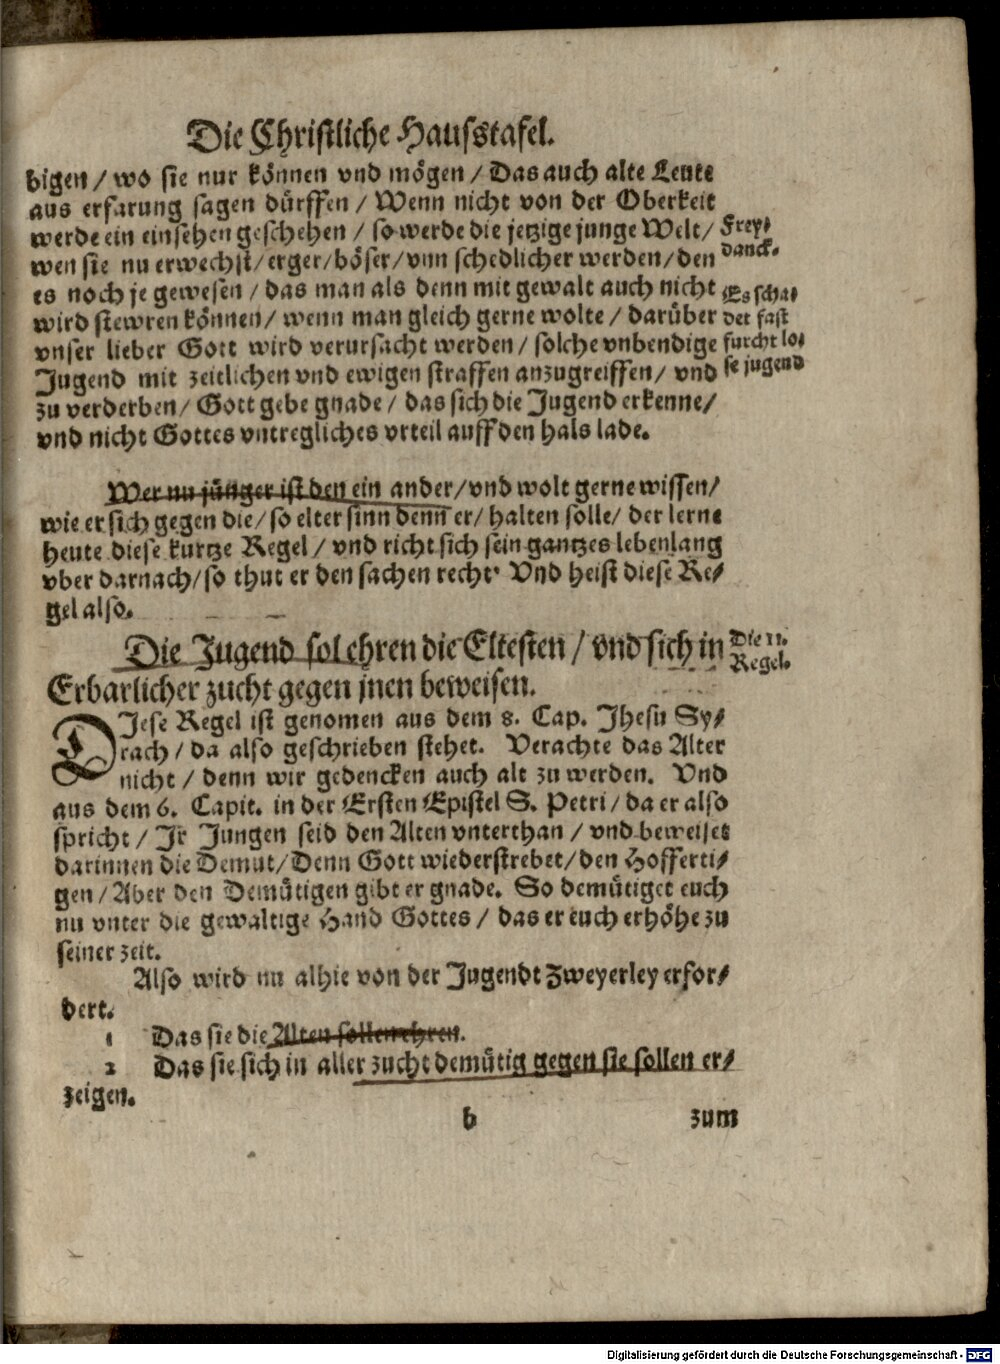 Die Christliche Hausstafel.
bigen / wo sie nur können vnd mögen / Das auch alte Leute
aus erfarung sagen dürffen / Wenn nicht von der Oberkeit
werde ein einsehen geschehen / so werde die jetzige junge Welt /
wen sie nu erwechst / erger / böser / vnn schedlicher werden / den
es noch je gewesen / das man als denn mit gewalt auch nicht
wird stewren können / wenn man gleich gerne wolte / darüber
vnser lieber Gott wird verursacht werden / solche vnbendige
Jugend mit zeitlichen vnd ewigen straffen anzugreiffen / vnd
zu verderben / Gott gebe gnade / das sich die Jugend erkenne /
vnd nicht Gottes vntregliches vrteil auff den hals lade.
Frey⸗
danck.
Es scha⸗
det fast
furcht lo⸗
se jugend
Wer nu jünger ist den ein ander / vnd wolt gerne wissen /
wie er sich gegen die / so elter sinn denn er / halten solle / der lerne
heute diese kurtze Regel / vnd richt sich sein gantzes lebenlang
vber darnach / so thut er den sachen recht. Vnd heist diese Re⸗
gel also.
Die Jugend sol ehren die Eltesten / vnd sich in
Erbarlicher zucht gegen jnen beweisen.
Die 11.
Regel.
DJese Regel ist genomen aus dem 8. Cap. Jhesu Sy⸗
rach / da also geschrieben stehet. Verachte das Alter
nicht / denn wir gedencken auch alt zu werden. Vnd
aus dem 6. Capit. in der Ersten Epistel S. Petri / da er also
spricht / Jr Jungen seid den Alten vnterthan / vnd beweiset
darinnen die Demut / Denn Gott wiederstrebet / den Hofferti⸗
gen / Aber den Demütigen gibt er gnade. So demütiget euch
nu vnter die gewaltige Hand Gottes / das er euch erhöhe zu
seiner zeit.
Also wird nu alhie von der Jugendt Zweyerley erfor⸗
dert.
1 Das sie die Alten sollen ehren.
2 Das sie sich in aller zucht demütig gegen sie sollen er⸗
zeigen.
b zum
Digitalisierung gefördert durch die Deutsche Forschungsgemeinschaft - DFG